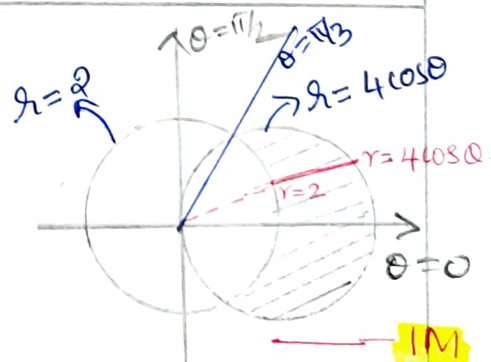 θ=π/2
θ=π/3
r=2
r=4cosθ
r=4cosθ
r=2
θ=0
1M